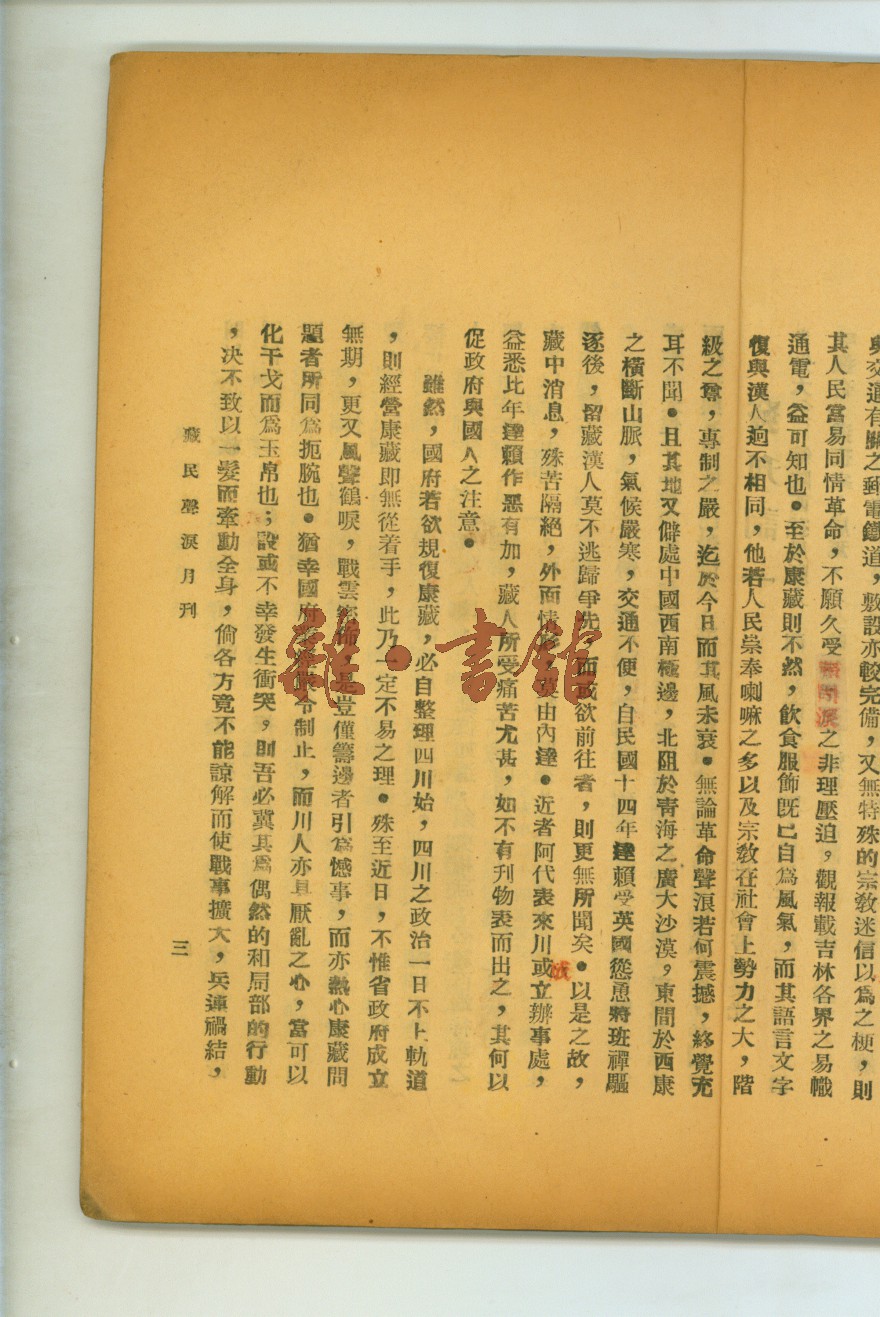 與交通有關之郵電鐵道，敷設亦較完備，又無特殊的宗敎迷信以爲之梗，則
其人民當易同情革命，不願久受之非理壓迫，觀報載吉林各界之易幟
通電，益可知也。至於康藏則不然，飮食服飾旣已自爲風氣，而其語言文字
復與漢人逈不相同，他若人民崇奉喇嘛之多以及宗敎在社會上勢力之大，階
級之尊，專制之嚴，迄於今日而其風未衰。無論革命聲浪若何震撼，終覺充
耳不聞。且其地又僻處中國西南極邊，北阻於靑海之廣大沙漠，東間於西康
之橫斷山脈，氣候嚴寒，交通不便，自民國十四年達賴受英國慫恿將班禪驅
逐後，留藏漢人莫不逃歸爭先，而或欲前往者，則更無所聞矣。以是之故，
藏中消息，殊苦隔絕，外面情形，莫由內達。近者阿代表來川或立辦事處，
成
益悉比年達賴作惡有加，藏人所受痛苦尤甚，如不有刊物表而出之，其何以
促政府與國人之注意。
雖然，國府若欲規復康藏，必自整理四川始，四川之政治一日不上軌道
，則經營康藏卽無從着手，此乃一定不易之理。殊至近日，不惟省政府成立
無期，更又風聲鶴唳，戰雲密佈，是豈僅籌邊者引爲憾事，而亦熱心康藏問
題者所同爲扼腕也。猶幸國府令制止，而川人亦具厭亂之心，當可以
化干戈而爲玉帛也；設或不幸發生衝突，則吾必冀其爲偶然的和局部的行動
，决不致以一髮而牽動全身，倘各方竟不能諒解而使戰事擴大，兵連禍結，
藏民聲淚月刊
三
雜·書館